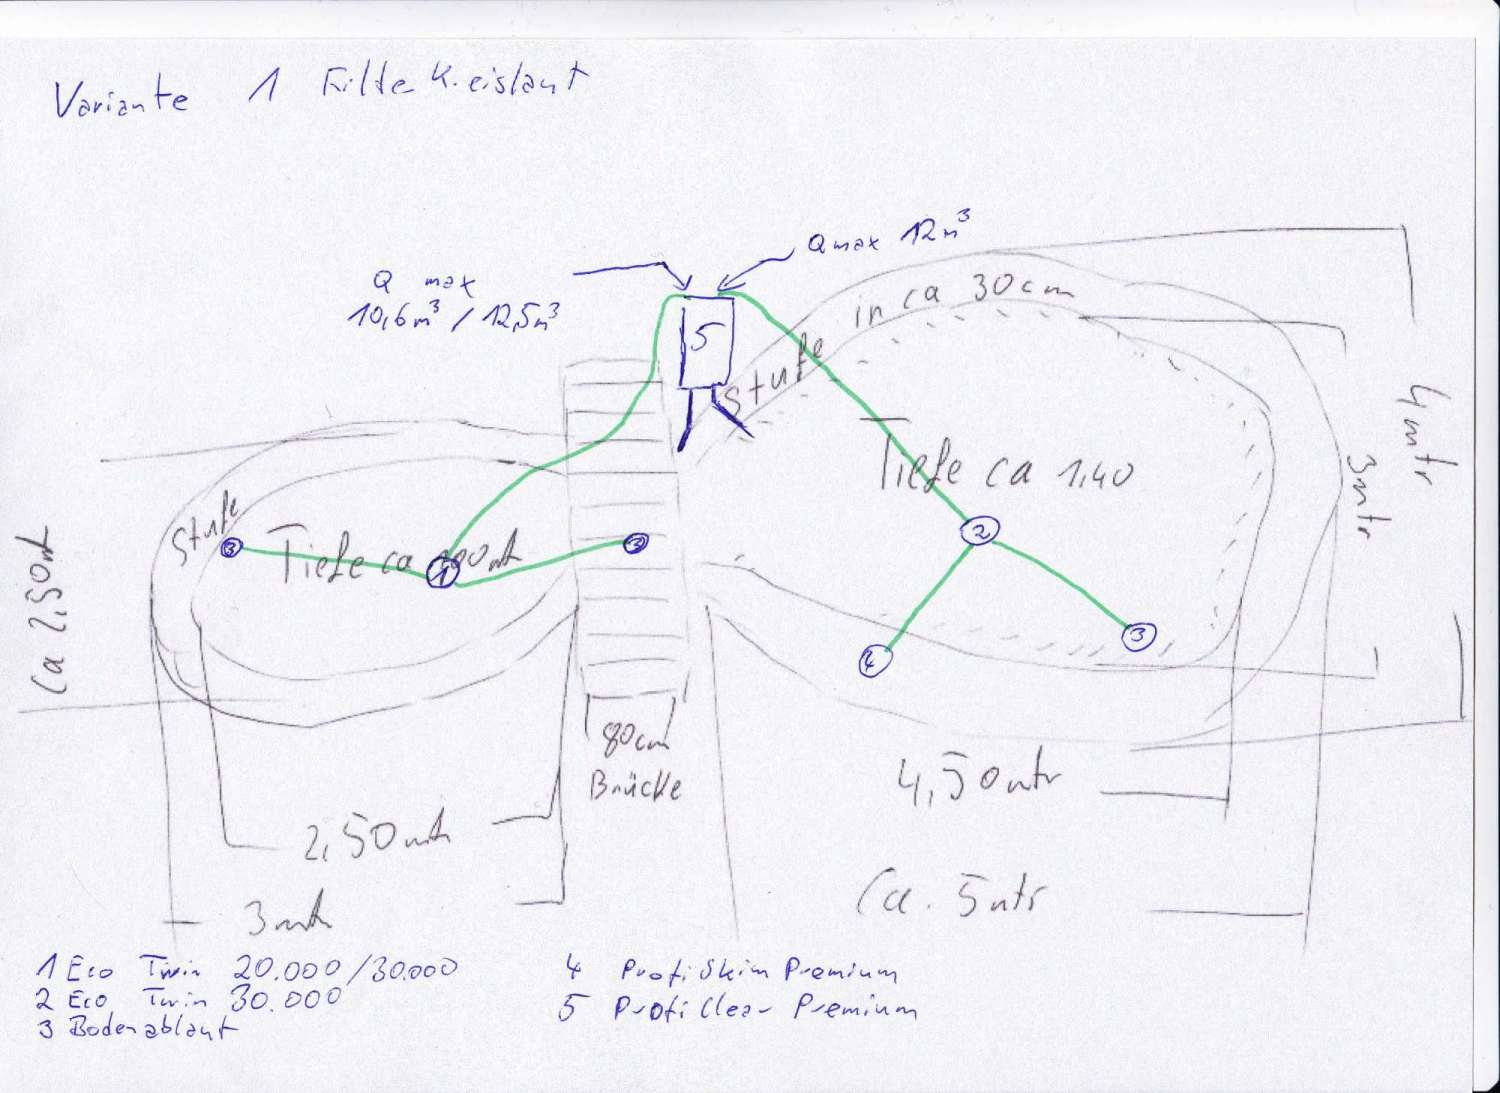 Variante 1 Filterkreislauf
Qmax 12m³
Q max
10,6m³ / 12,5m³
5
Stufe in ca 30cm
4mtr
3mtr
Tiefe ca 1,40
Stufe
Tiefe ca
3
1
3
2
3
4
ca 2,50mtr
80cm
Brücke
4,50mtr
2,50mtr
Ca. 5mtr
3mtr
1 Eco Twin 20.000/30.000
2 Eco Twin 30.000
3 Bodenablauf
4 ProfiSkim Premium
5 ProfiClear Premium